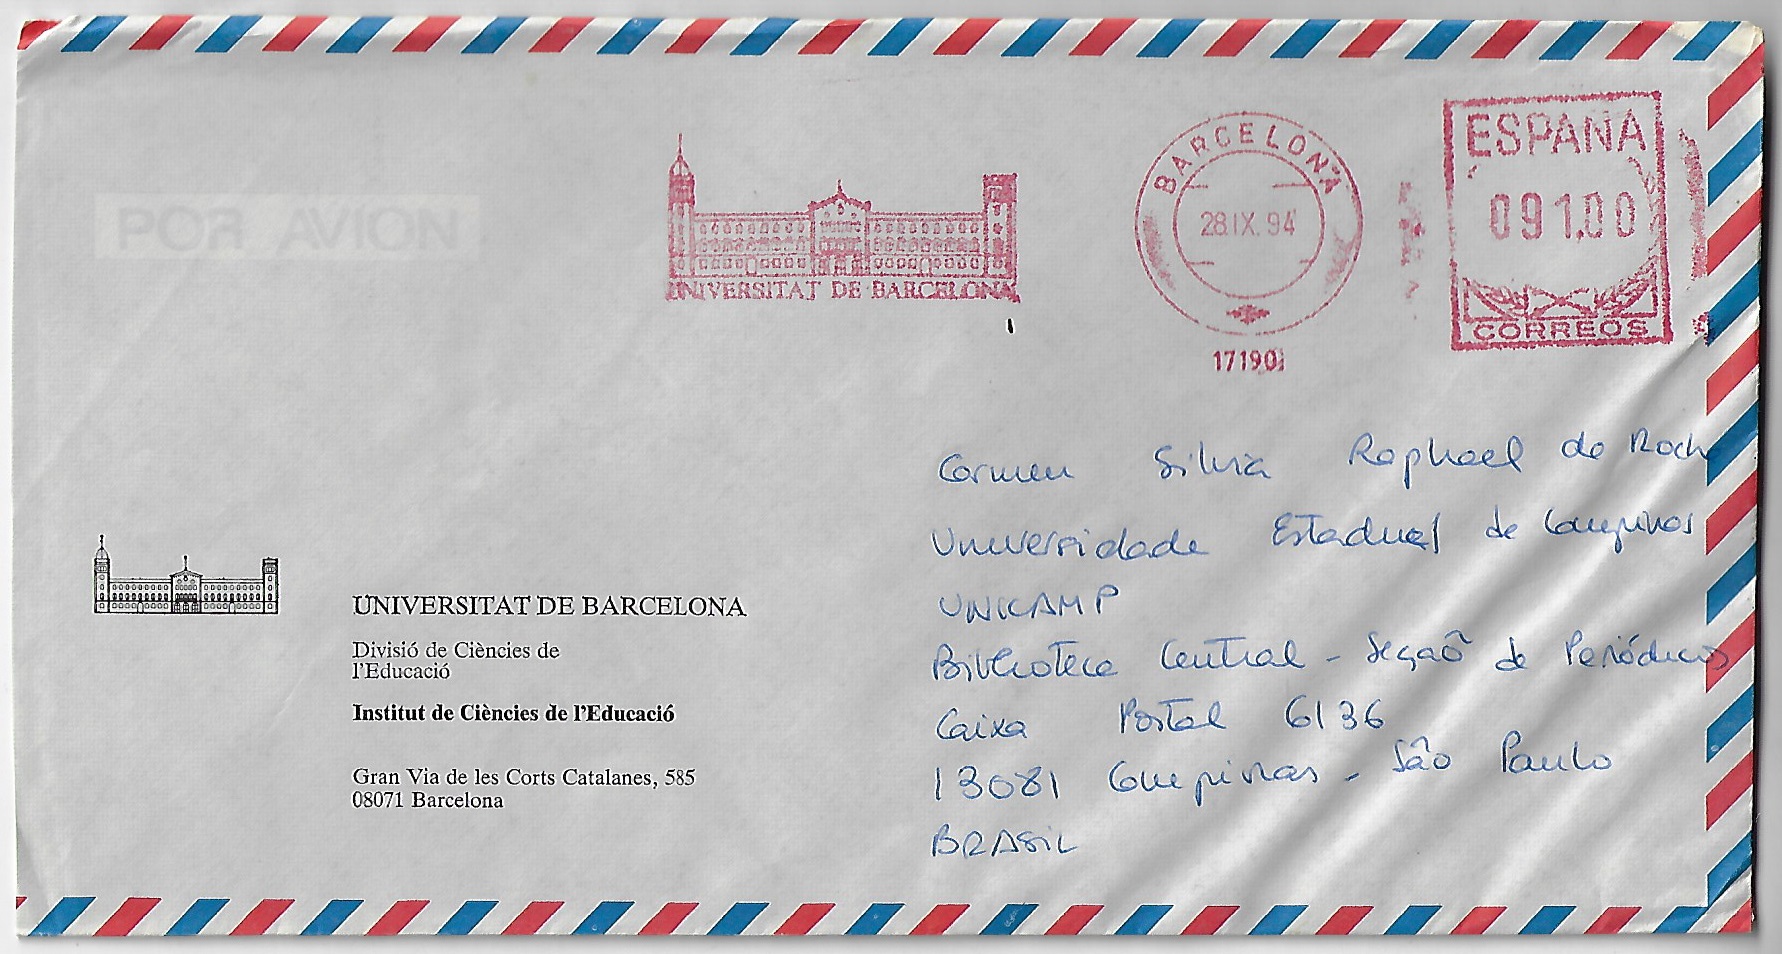 POR AVION
UNIVERSITAT DE BARCELONA
BARCELONA
28.IX.94
17190
ESPAÑA
091.00
CORREOS
Carmen Silvia Raphael de Roch
Universidade Estadual de Campinas
UNICAMP
Biblioteca Central - Seçaõ de Periódicos
Caixa Postal 6136
13081 Campinas - São Paulo
BRASIL
UNIVERSITAT DE BARCELONA
Divisió de Ciències de
l'Educació
Institut de Ciències de l'Educació
Gran Via de les Corts Catalanes, 585
08071 Barcelona